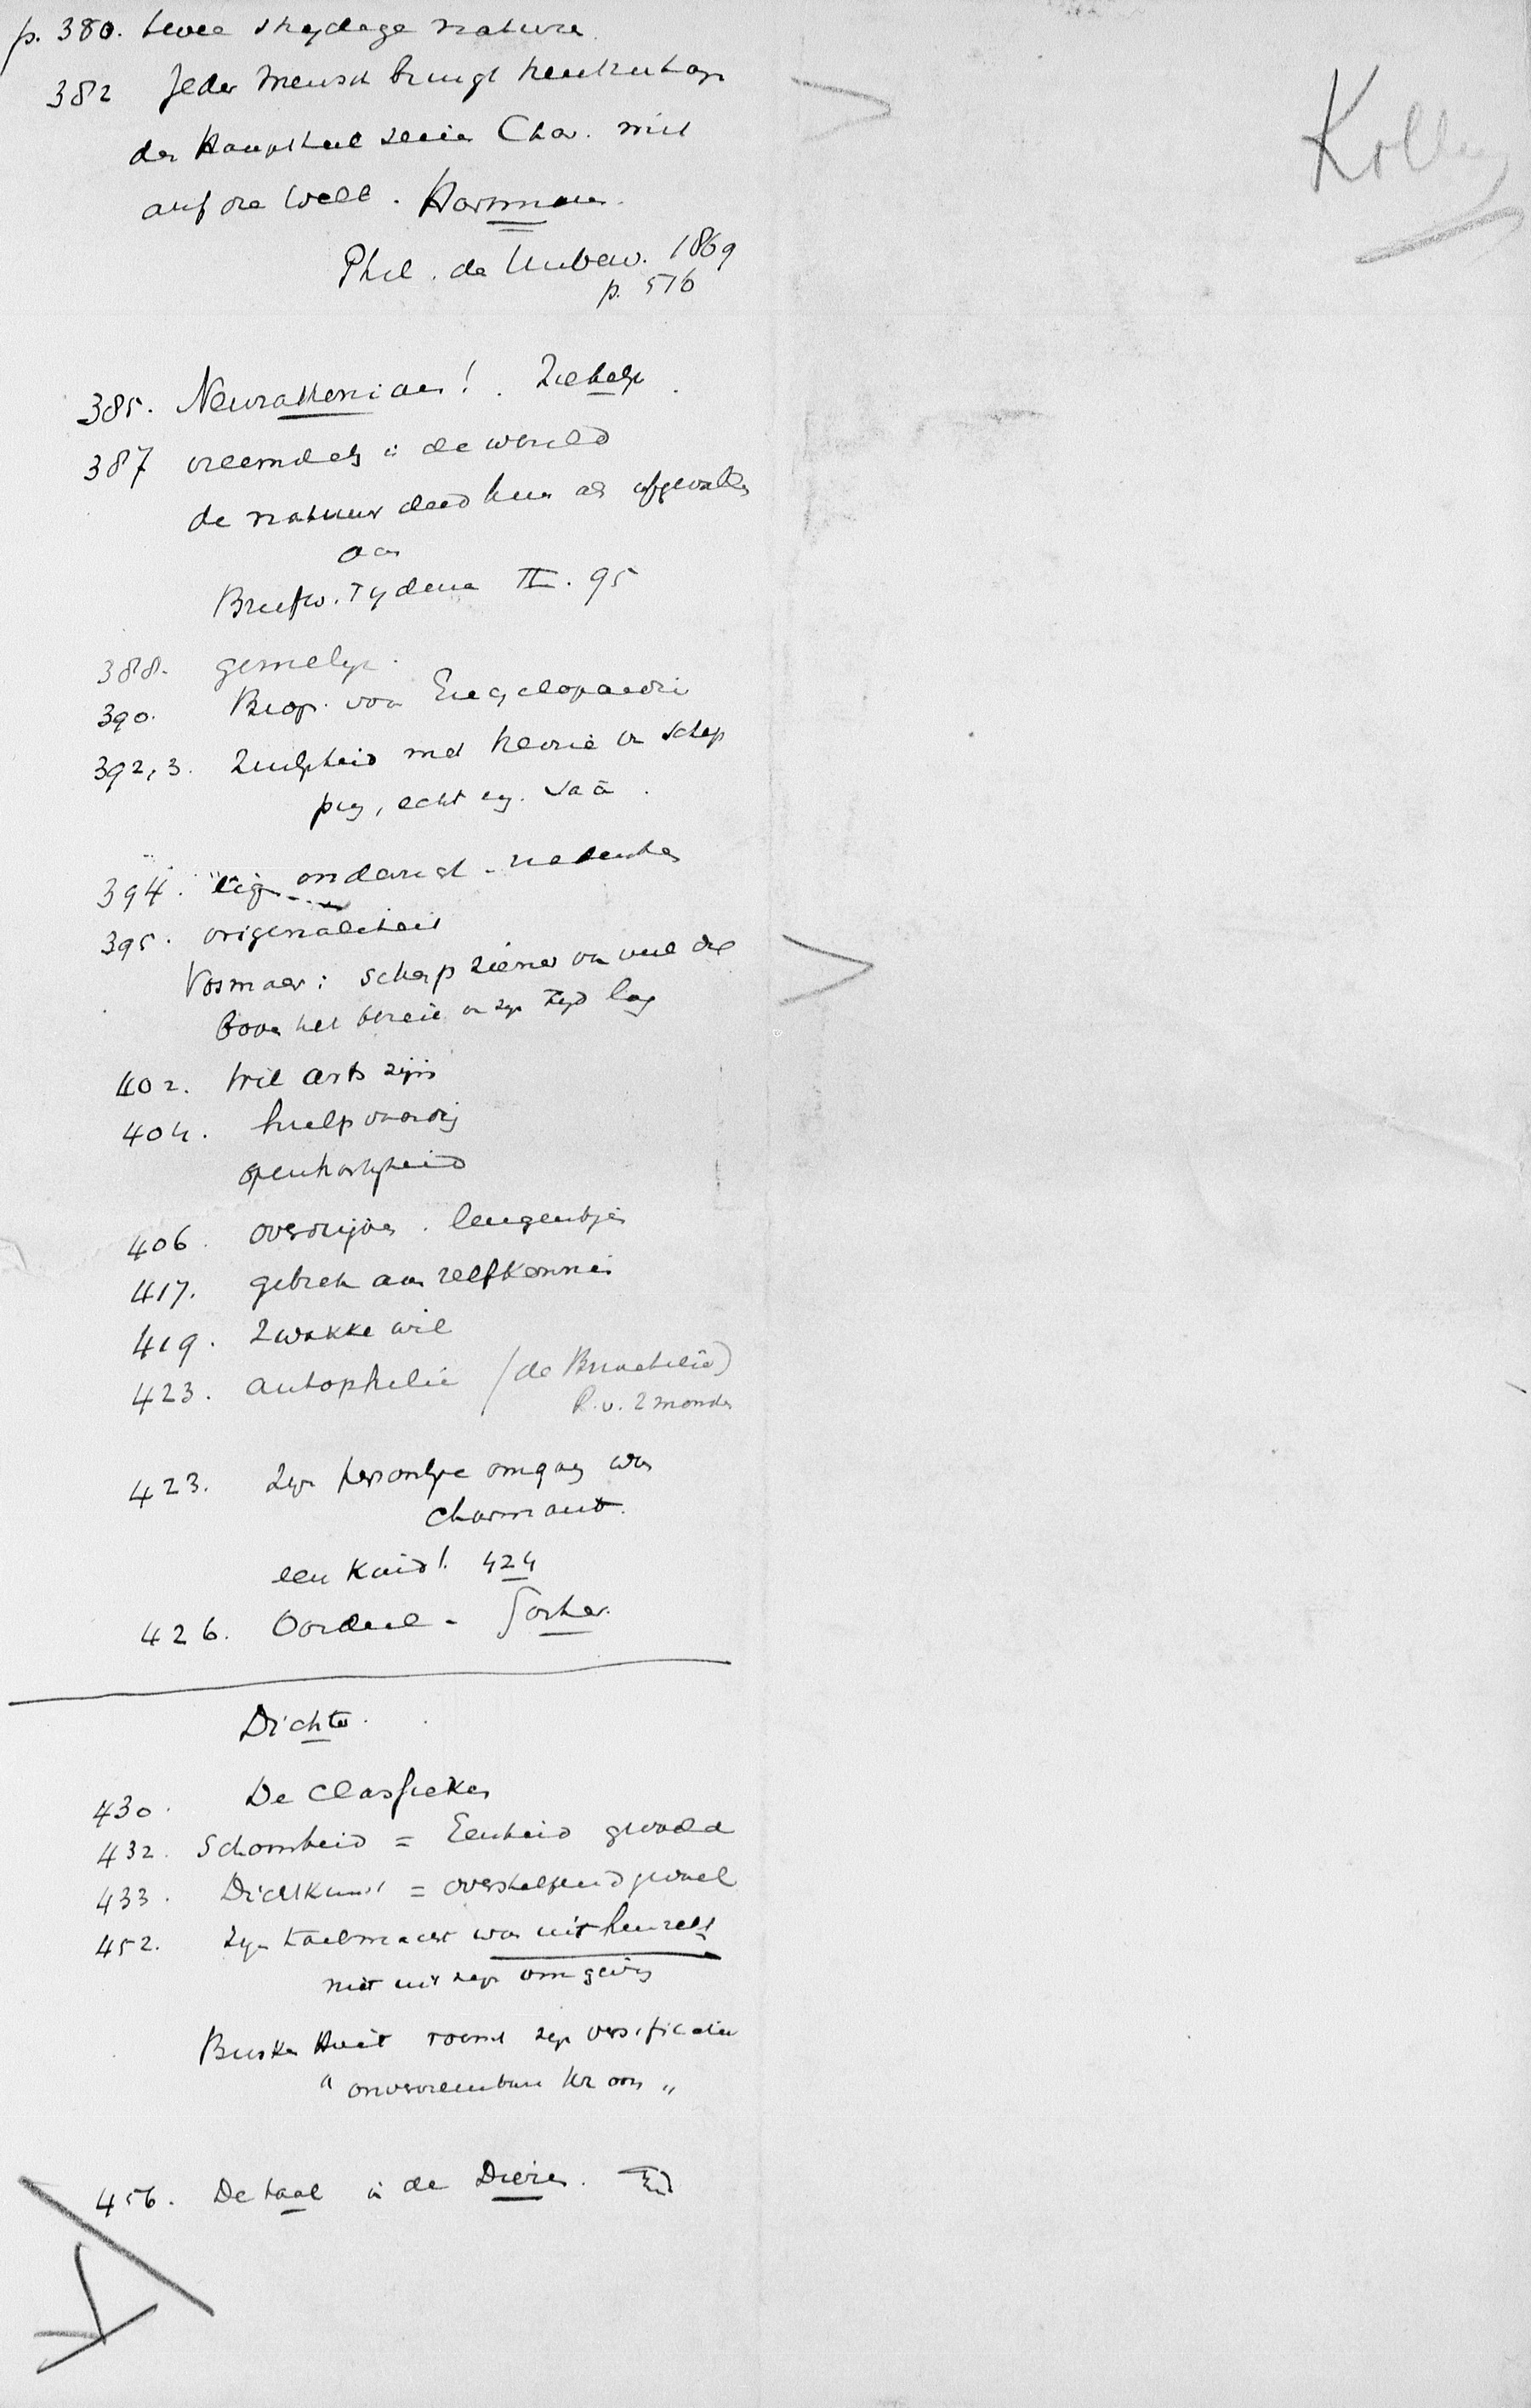 p. 380. twee strydige nature
382 Jeder Mensch bringt
der Haupttheil seine Char. mit
auf die Welt. Hartmann.
Phil. de Unbew. 1869
p. 516
Kolle
385. Neurasthenicus! Ziekelijk.
387 vreemdeling in de wereld
de natuur deed hem als afgevallen
aan
Briefw. Tydeman II. 95
388. gemelijk.
390. Biogr. van Encyclopaedie
392, 3. Zuiligheid met theorie en schep
ping, echt
394. "eig. onderricht - nadenken
395. originaliteit
Vosmaer: scherp ziener van veel dat
boven het bereik van zijn tijd lag
402. Wil arts zijn
404. hulpvaardig
openhartigheid
406. overdrijven. leugentjes
417. gebrek aan zelfkennis
419. Zwakke wil
423. autophilie (de Brunetière)
R. v. 2 mondes
423. Zijn persoonlijke omgang was
charmant.
een kind! 424
426. Oordeel - Gorter.
Dichter.
430. De Classieken
432. Schoonheid = Eenheid gevoeld
433. Dichtkunst = overstelpend gevoel
452. Zijn taalmacht was uit hemzelf
niet uit zijn omgeving
Busken Huet roemt zijn versificatie
"onvervreembare kroon"
456. De taal in de Dieren.